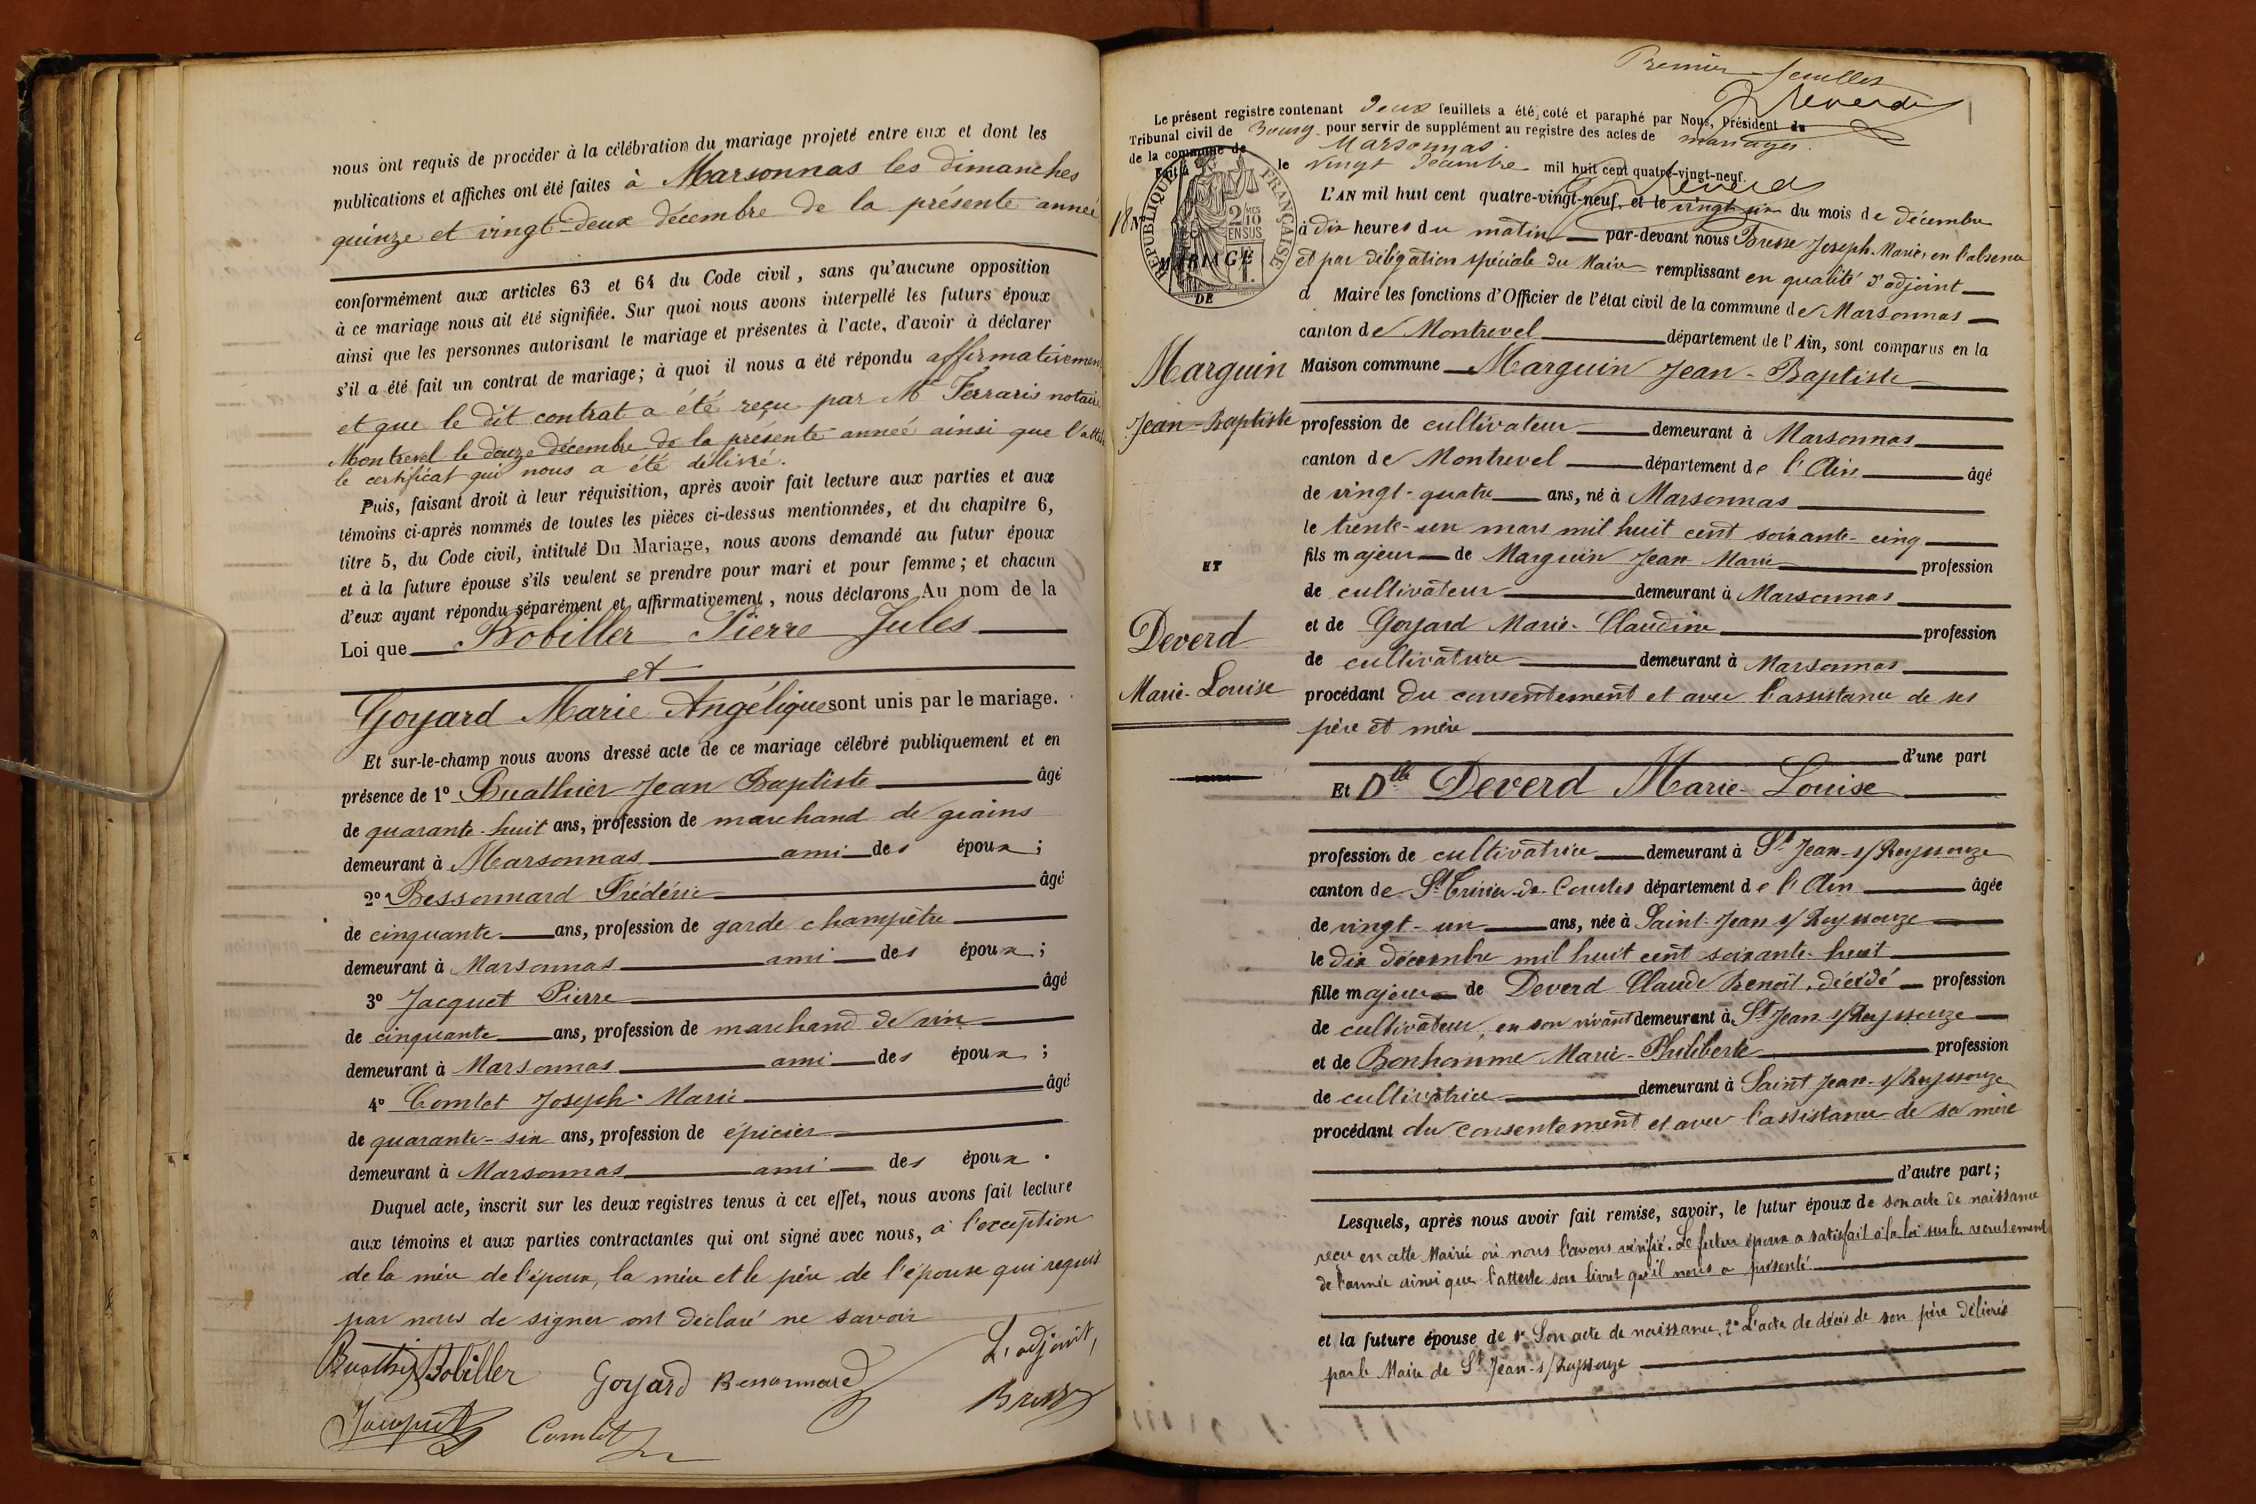 nous ont requis de procéder à la célébration du mariage projeté entre eux et dont les
publications et affiches ont été faites à Marsonnas les dimanches
quinze et vingt-deux décembre de la présente année
conformément aux articles 63 et 64 du Code civil, sans qu'aucune opposition
à ce mariage nous ait été signifiée. Sur quoi nous avons interpellé les futurs époux
ainsi que les personnes autorisant le mariage et présentes à l'acte, d'avoir à déclarer
s'il a été fait un contrat de mariage; à quoi il nous a été répondu affirmativement
et que le dit contrat a été reçu par Me Ferraris notaire
Montrevel le douze décembre de la présente année ainsi que l'atteste
le certificat qui nous a été délivré.
Puis, faisant droit à leur réquisition, après avoir fait lecture aux parties et aux
témoins ci-après nommés de toutes les pièces ci-dessus mentionnées, et du chapitre 6,
titre 5, du Code civil, intitulé Du Mariage, nous avons demandé au futur époux
et à la future épouse s'ils veulent se prendre pour mari et pour femme; et chacun
d'eux ayant répondu séparément et affirmativement, nous déclarons Au nom de la
Loi que Bobiller Pierre Jules
et
Goyard Marie Angélique sont unis par le mariage.
Et sur-le-champ nous avons dressé acte de ce mariage célébré publiquement et en
présence de 1° Buathier Jean Baptiste âgé
de quarante-huit ans, profession de marchand de grains
demeurant à Marsonnas ami des époux;
2° Bessonnard Frédéric âgé
de cinquante ans, profession de garde champêtre
demeurant à Marsonnas ami des époux;
3° Jacquet Pierre âgé
de cinquante ans, profession de marchand de vin
demeurant à Marsonnas ami des époux;
4° Comtet Joseph-Marie âgé
de quarante-six ans, profession de épicier
demeurant à Marsonnas ami des époux.
Duquel acte, inscrit sur les deux registres tenus à cet effet, nous avons fait lecture
aux témoins et aux parties contractantes qui ont signé avec nous, à l'exception
de la mère de l'époux, la mère et le père de l'épouse qui requis
par nous de signer ont déclaré ne savoir
Buathier Bobiller Goyard Bessonnard L'adjoint,
Jacquet Comtet Bresse
Premier feuillet
Le présent registre contenant deux feuillets a été coté et paraphé par Nous, Président du
Tribunal civil de Bourg pour servir de supplément au registre des actes de mariages
de la commune de Marsonnas.
Fait à le vingt décembre mil huit cent quatre-vingt-neuf.
RÉPUBLIQUE FRANÇAISE
2 MES 10 EN SUS
18 N°
MARIAGE
DE
L'AN mil huit cent quatre-vingt-neuf et le vingt six du mois de décembre
à dix heures du matin par-devant nous Bresse Joseph-Marie, en l'absence
et par délégation spéciale du Maire remplissant en qualité d'adjoint
d Maire les fonctions d'Officier de l'état civil de la commune de Marsonnas
canton de Montrevel département de l'Ain, sont comparus en la
Marguin
Maison commune Marguin Jean-Baptiste
Jean-Baptiste
profession de cultivateur demeurant à Marsonnas
canton de Montrevel département de l'Ain âgé
de vingt-quatre ans, né à Marsonnas
le trente-un mars mil huit cent soixante-cinq
fils majeur de Marguin Jean Marie profession
ET
de cultivateur demeurant à Marsonnas
et de Goyard Marie-Claudine profession
Deverd
de cultivatrice demeurant à Marsonnas
Marie-Louise
procédant du consentement et avec l'assistance de ses
père et mère
d'une part
Et Dlle Deverd Marie-Louise
profession de cultivatrice demeurant à St Jean-s/Reyssouze
canton de St Trivier-de-Courtes département de l'Ain âgée
de vingt-un ans, née à Saint-Jean s/Reyssouze
le dix décembre mil huit cent soixante-huit
fille majeure de Deverd Claude Benoît, décédé profession
de cultivateur, en son vivant demeurant à St Jean s/Reyssouze
et de Bonhomme Marie-Philiberte profession
de cultivatrice demeurant à Saint Jean-s/Reyssouze
procédant du consentement et avec l'assistance de sa mère
d'autre part;
Lesquels, après nous avoir fait remise, savoir, le futur époux de son acte de naissance
reçu en cette Mairie où nous l'avons vérifié. Le futur époux a satisfait à la loi sur le recrutement
de l'armée ainsi que l'atteste son livret qu'il nous a présenté
et la future épouse de 1° Son acte de naissance. 2° L'acte de décès de son père délivrés
par le Maire de St Jean-s/Reyssouze